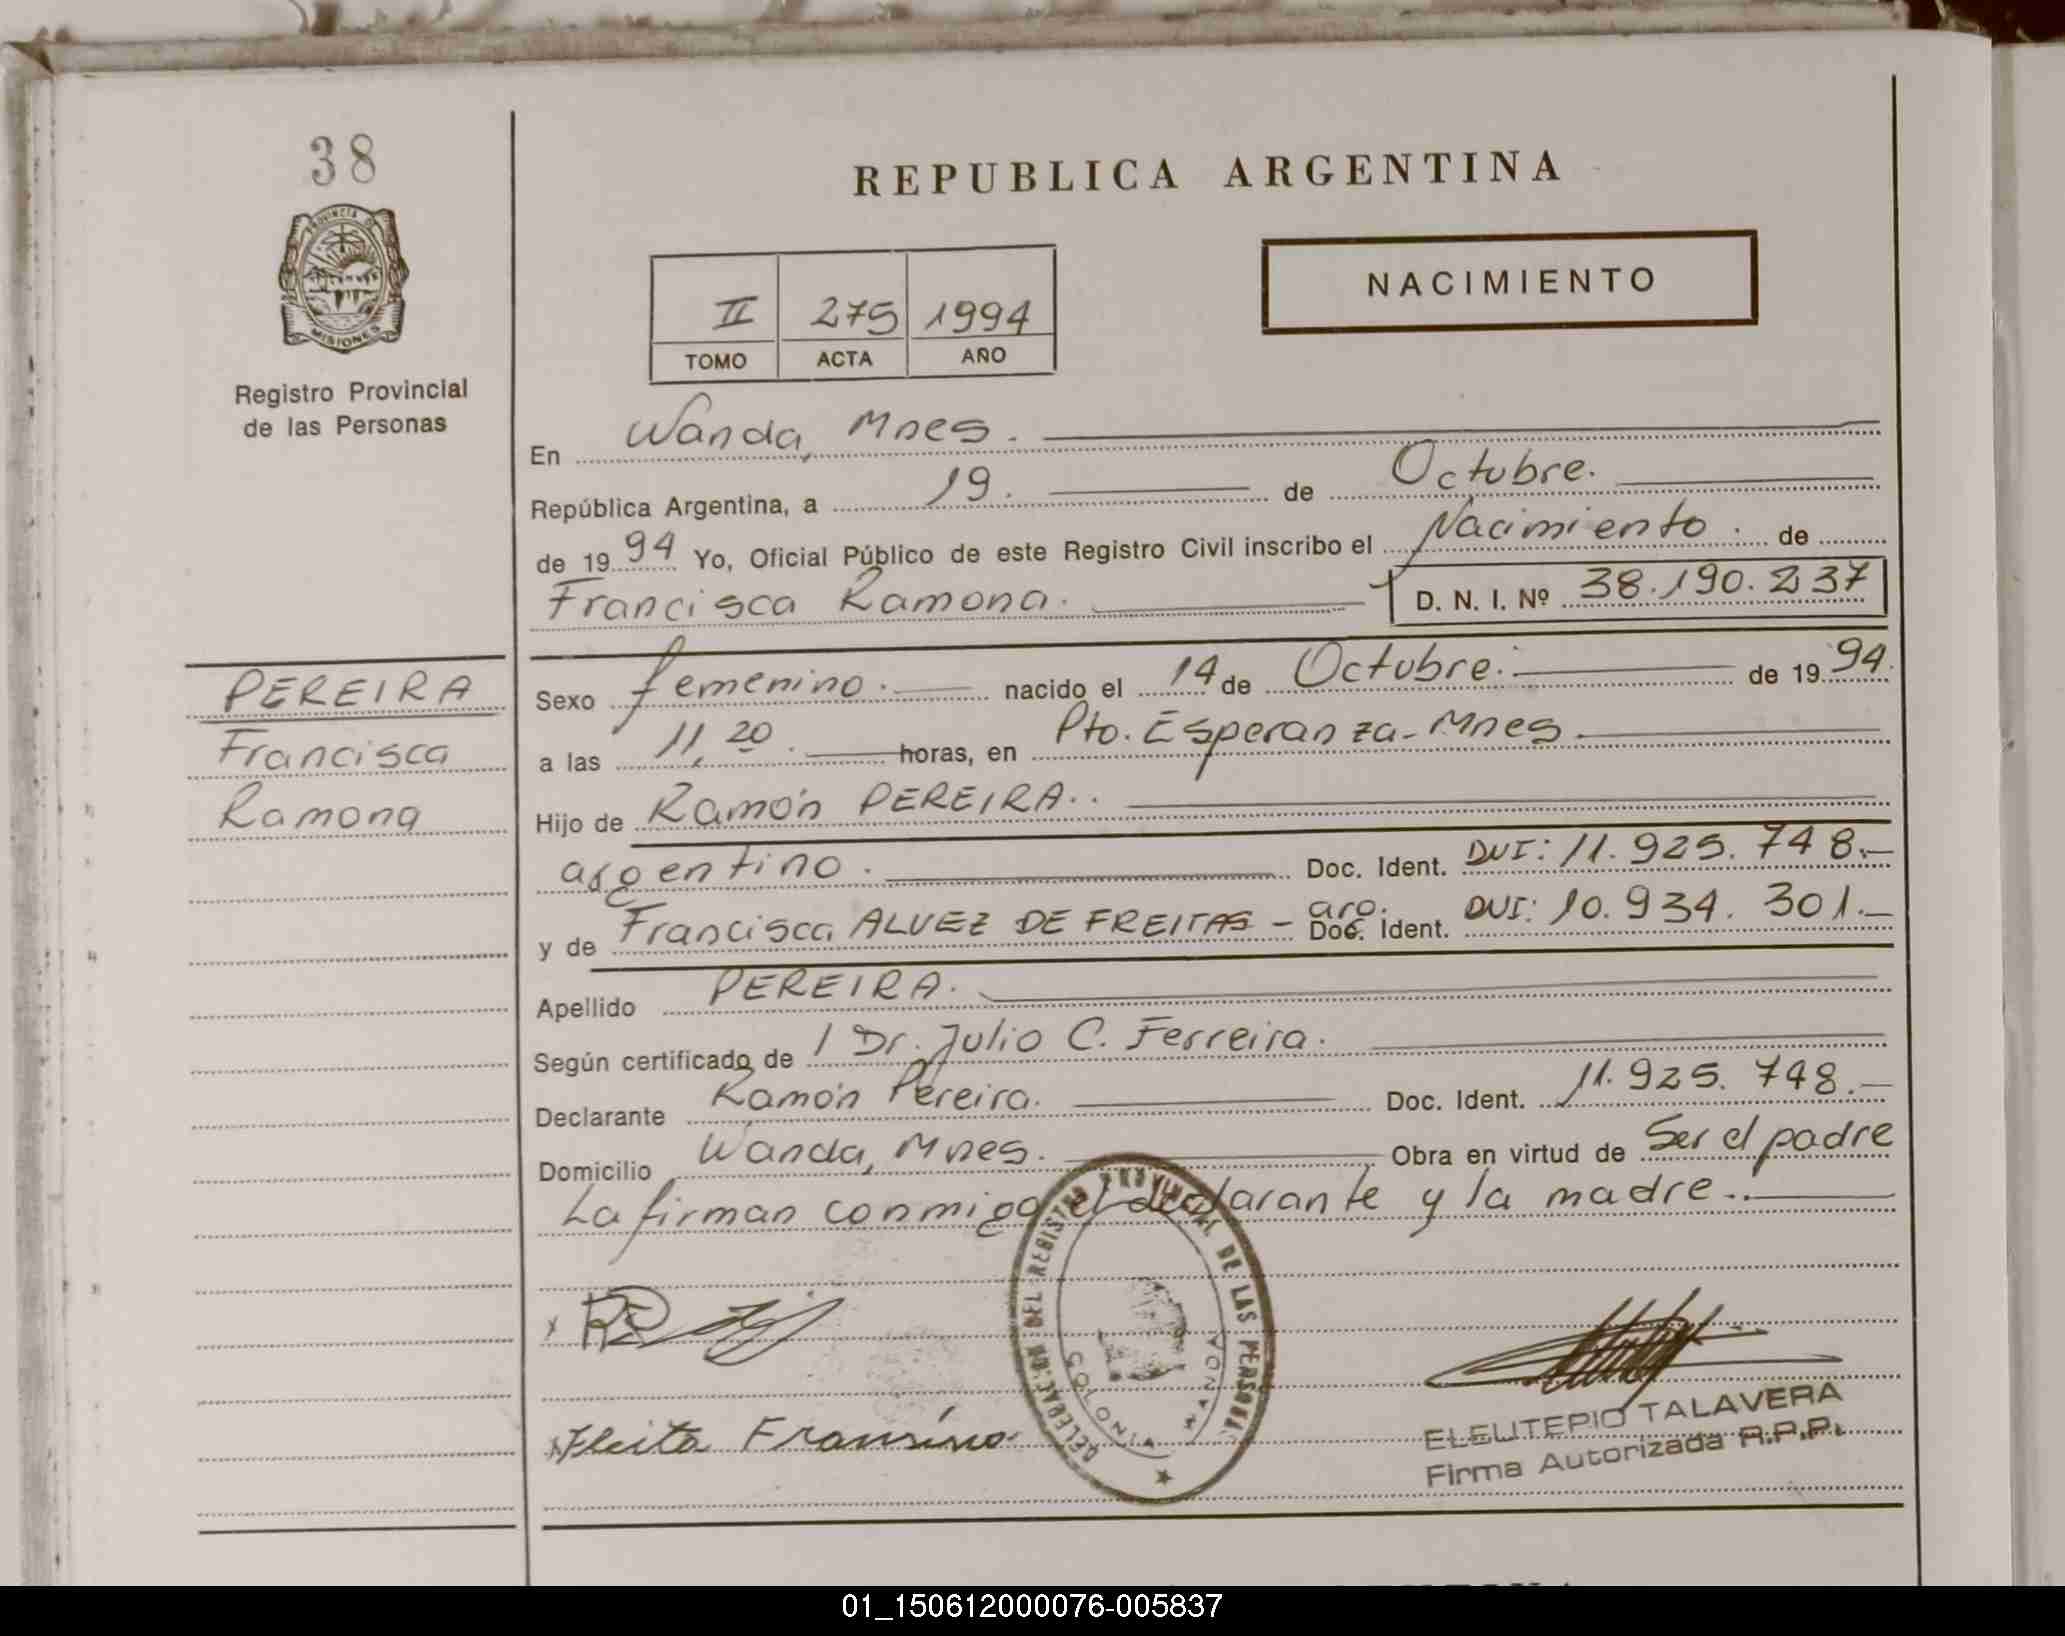 38
REPUBLICA ARGENTINA
PROVINCIA DE
MISIONES
Registro Provincial
de las Personas
NACIMIENTO
II 275 1994
TOMO ACTA AÑO
En Wanda, Mnes.
República Argentina, a 19. de Octubre.
de 1994 Yo, Oficial Público de este Registro Civil inscribo el Nacimiento. de
Francisca Ramona. D. N. I. Nº 38.190.237
PEREIRA
Francisca
Ramona
Sexo femenino. nacido el 14 de Octubre. de 1994.
a las 11,20. horas, en Pto. Esperanza-Mnes.
Hijo de Ramón PEREIRA..
argentino. Doc. Ident. DNI: 11.925.748.-
y de Francisca ALVEZ DE FREITAS - arg. Doc. Ident. DNI: 10.934.301.-
Apellido PEREIRA.
Según certificado de / Dr. Julio C. Ferreira.
Declarante Ramón Pereira. Doc. Ident. 11.925.748.-
Domicilio Wanda, Mnes. Obra en virtud de Ser el padre
La firman conmigo el declarante y la madre..
DELEGACION DEL REGISTRO PROVINCIAL DE LAS PERSONAS
COLONIA WANDA
x
ELEUTERIO TALAVERA
Firma Autorizada R.P.P.
01_150612000076-005837